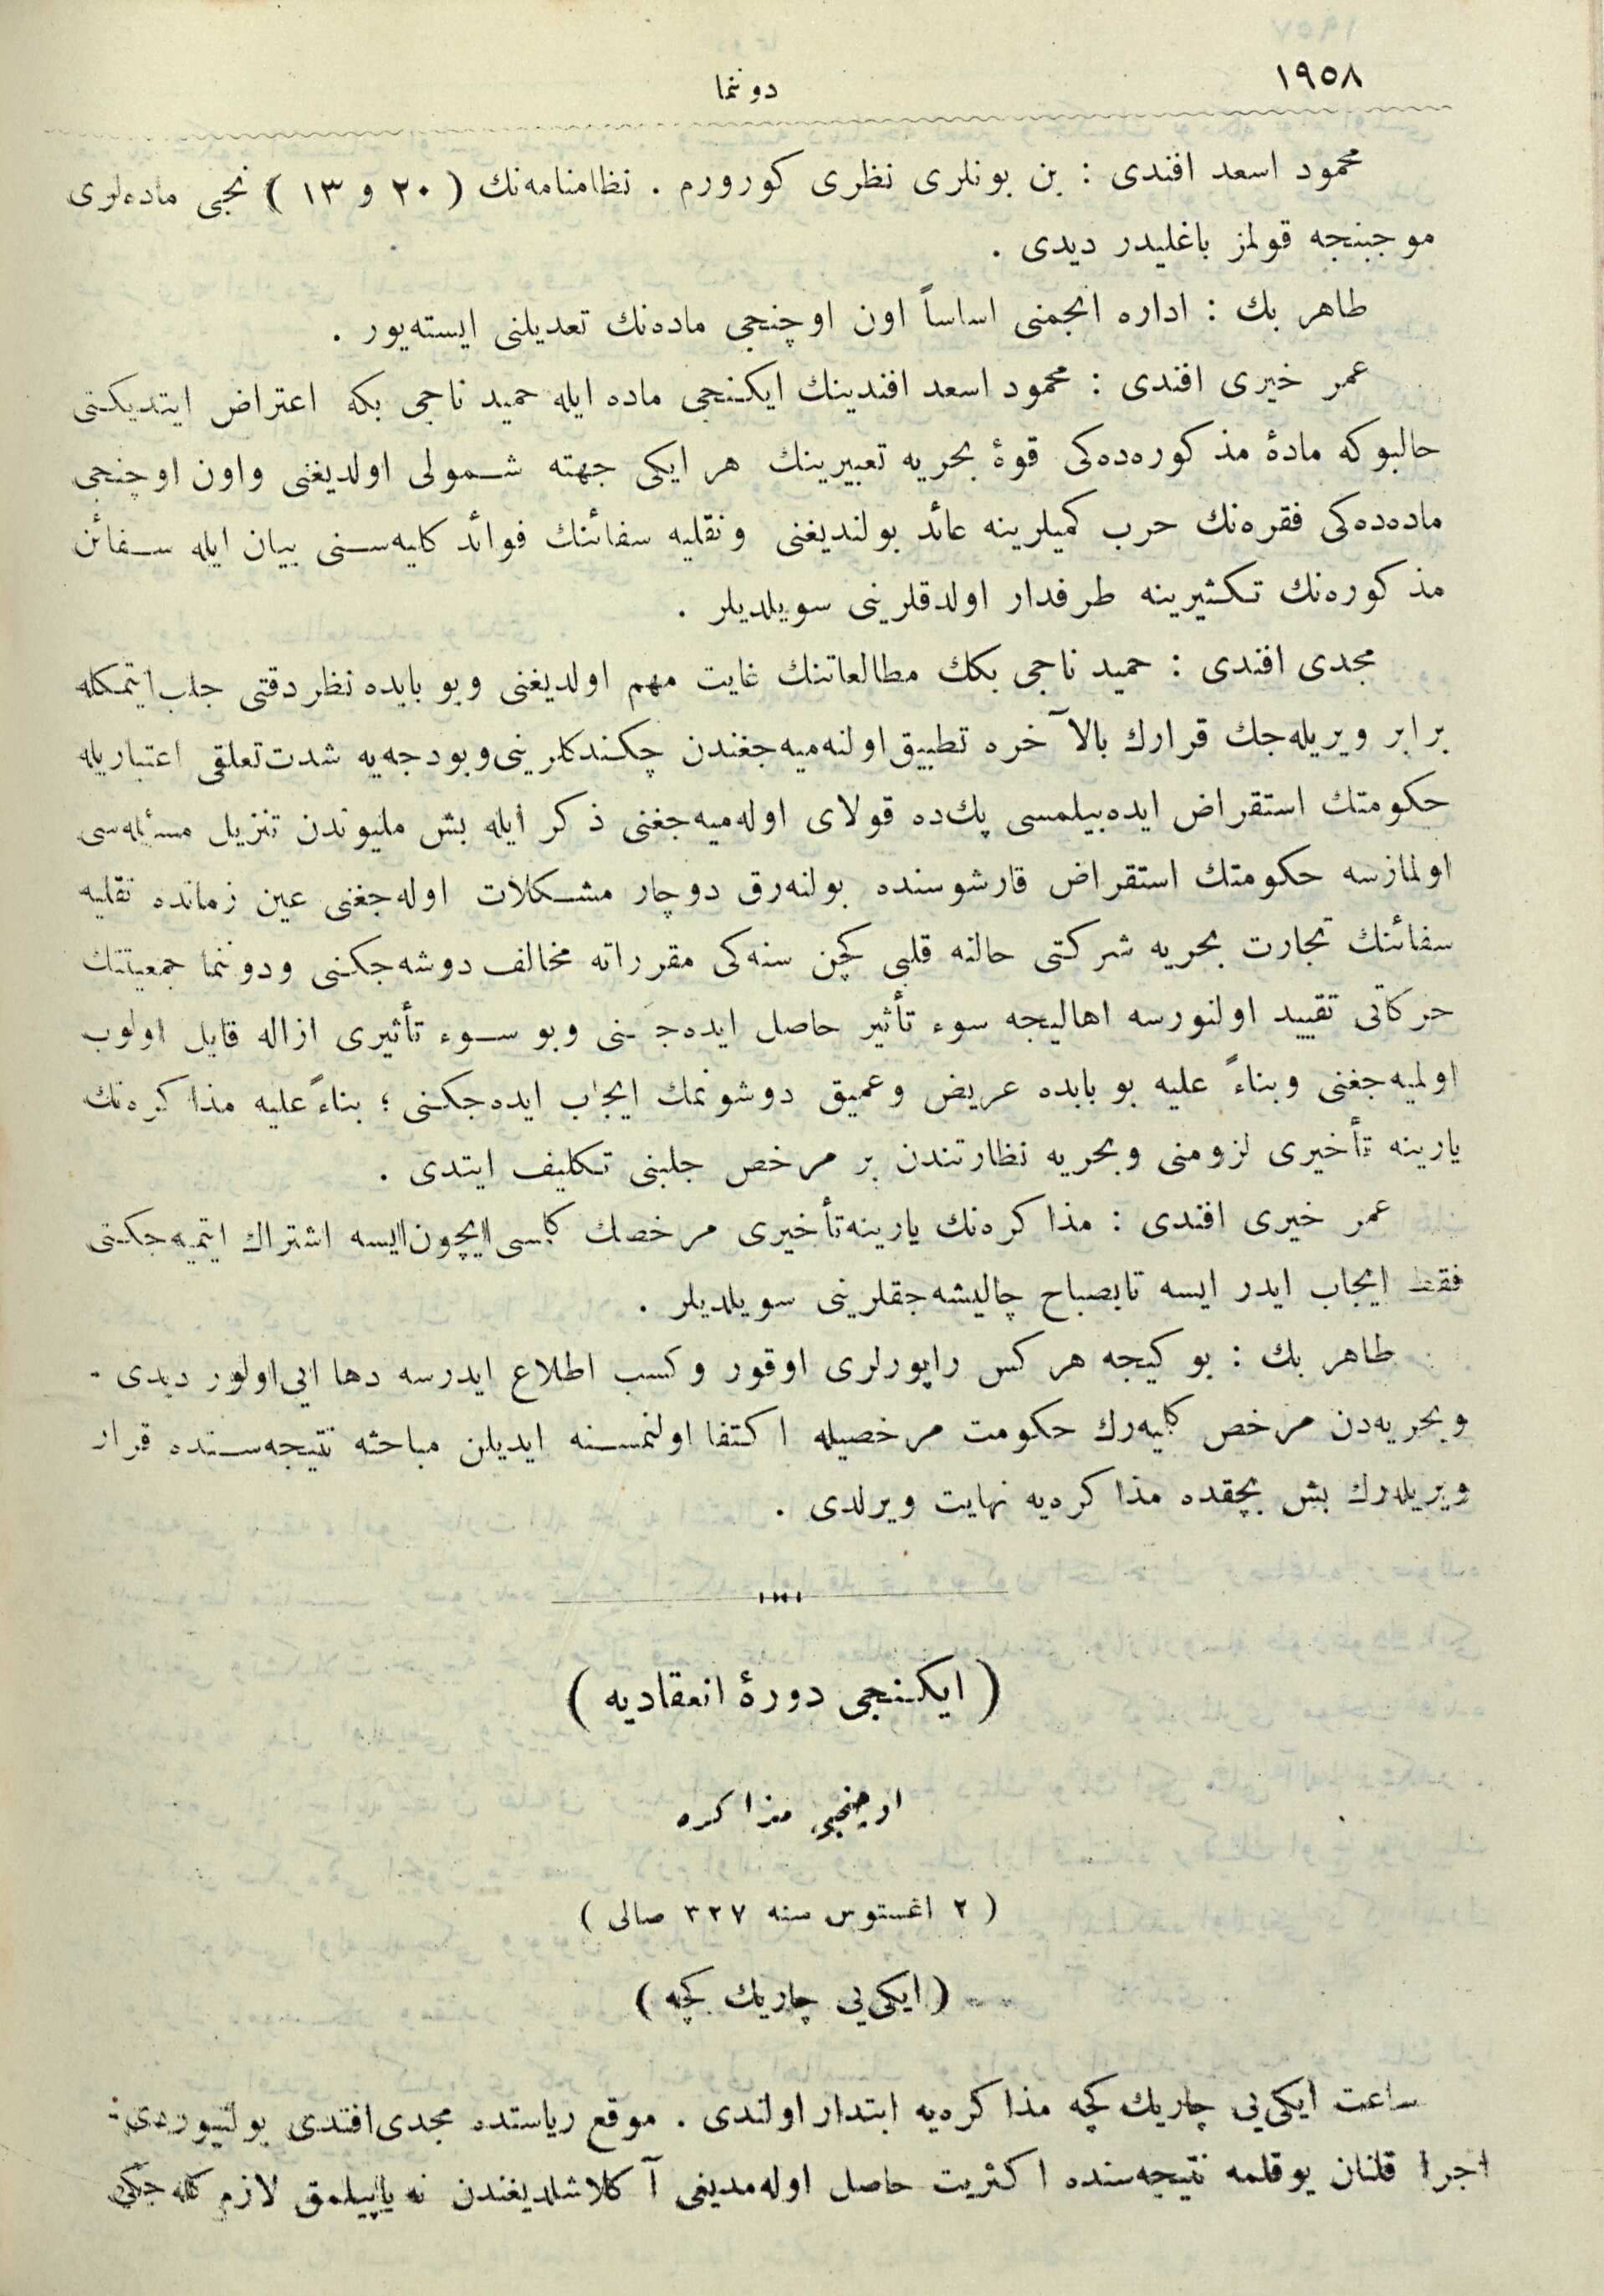 ١٩٥٨
دوننما
محمود اسعد افندى : بن بونلرى نظرى كورورم . نظامنامه‌نك ( ٢٠ و ١٣ ) نجى ماده‌لرى
موجبنجه قولمز باغليدر ديدى .
طاهر بك : اداره انجمنى اساساً اون اوچنجى ماده‌نك تعديلنى ايسته‌يور .
عمر خيرى افندى : محمود اسعد افندينك ايكنجى ماده ايله حميد ناجى بكه اعتراض ايتديكنى
حالبوكه مادهٔ مذكوره‌ده‌كى قوهٔ بحريه تعبيرينك هر ايكى جهته شمولى اولديغنى واون اوچنجى
ماده‌ده‌كى فقره‌نك حرب كميلرينه عائد بولنديغنى ونقليه سفائنك فوائد كليه‌سنى بيان ايله سفائن
مذكوره‌نك تكثيرينه طرفدار اولدقلرينى سويلديلر .
مجدى افندى : حميد ناجى بكك مطالعاتنك غايت مهم اولديغنى وبو بابده نظر دقتى جلب ايتمكله
برابر ويريله‌جك قرارك بالآخره تطبيق اولنه‌ميه‌جغندن چكندكلرينى وبودجه‌يه شدت تعلقى اعتباريله
حكومتك استقراض ايده‌بيلمسى پك‌ده قولاى اوله‌ميه‌جغنى ذكر ايله بش مليوندن تنزيل مسئله‌سى
اولمازسه حكومتك استقراض قارشوسنده بولنه‌رق دوچار مشكلات اوله‌جغنى عين زمانده نقليه
سفائنك تجارت بحريه شركتى حالنه قلبى كچن سنه‌كى مقرراته مخالف دوشه‌جكنى ودوننما جمعيتنك
حركاتى تقييد اولنورسه اهاليجه سوء تأثير حاصل ايده‌جكنى وبو سوء تأثيرى ازاله قابل اولوب
اولميه‌جغنى وبناءً عليه بو بابده عريض وعميق دوشونمك ايجاب ايده‌جكنى ؛ بناءً عليه مذاكره‌نك
يارينه تأخيرى لزومنى وبحريه نظارتندن بر مرخص جلبنى تكليف ايتدى .
عمر خيرى افندى : مذاكره‌نك يارينه تأخيرى مرخصك كلمسى ايچون ايسه اشتراك ايتميه‌جكنى
فقط ايجاب ايدر ايسه تابصباح چاليشه‌جقلرينى سويلديلر .
طاهر بك : بو كيجه هر كس راپورلرى اوقور وكسب اطلاع ايدرسه دها ايى اولور ديدى .
وبحريه‌دن مرخص كليه‌رك حكومت مرخصيله اكتفا اولنمسنه ايديلن مباحثه نتيجه‌سنده قرار
ويريله‌رك بش بچقده مذاكره‌يه نهايت ويرلدى .
( ايكنجى دورهٔ انعقاديه )
اوچنجى مذاكره
( ٢ اغستوس سنه ٣٢٧ صالى )
( ايكى‌يى چاريك كچه )
ساعت ايكى‌يى چاريك كچه مذاكره‌يه ابتدار اولندى . موقع رياستده مجدى افندى بولنيوردى .
اجرا قلنان يوقلمه نتيجه‌سنده اكثريت حاصل اوله‌مديغى آكلاشلديغندن نه ياپيلمق لازم كله‌جكى